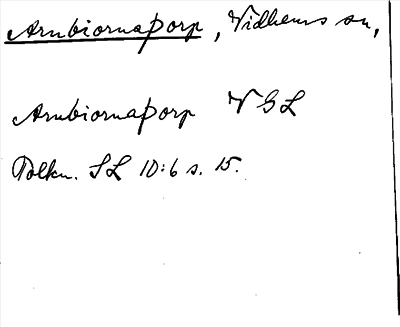 Arnbiornaþorp, Vidhems sn,
Arnbiornaþorp VGL
Tolkn. SL 10:6 s. 15.